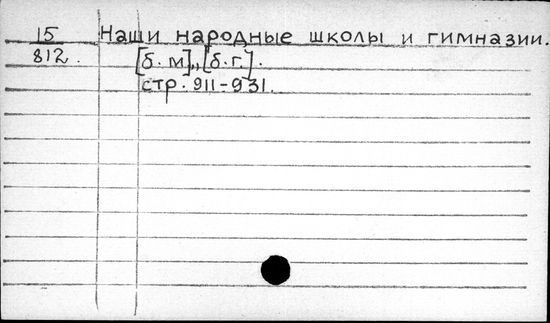 15 Наши народные школы и гимназии.
812. [б. м], [б. г.].
стр. 911-931.